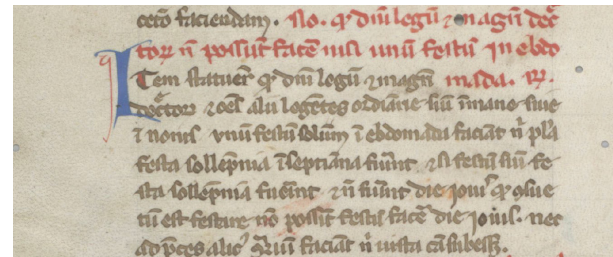 cetō faciendam. No. q̄ dn̄i legū ⁊ magr̄i doc
tor n̄ possūt facē nisi unū festū in ebdo
Item statuer̄ q̄ dn̄i legū ⁊ magr̄i mada. R.
doctor ⁊ oēs alii legētes ordiarie siu ī mane siue
ī nonis unū festū solum ī ebdomada faciāt n̄
festa sollēpnia ī septiāna fiunt ⁊ si festū siu fe
sta sollēpnia fuerint ⁊ n̄ fiunt die iouis q̄ ↄsue
tū est festare nō possīt festū facē die iouis. nec
ad p̄ces alic̄ faciāt n̄ iusta cā subess̄.